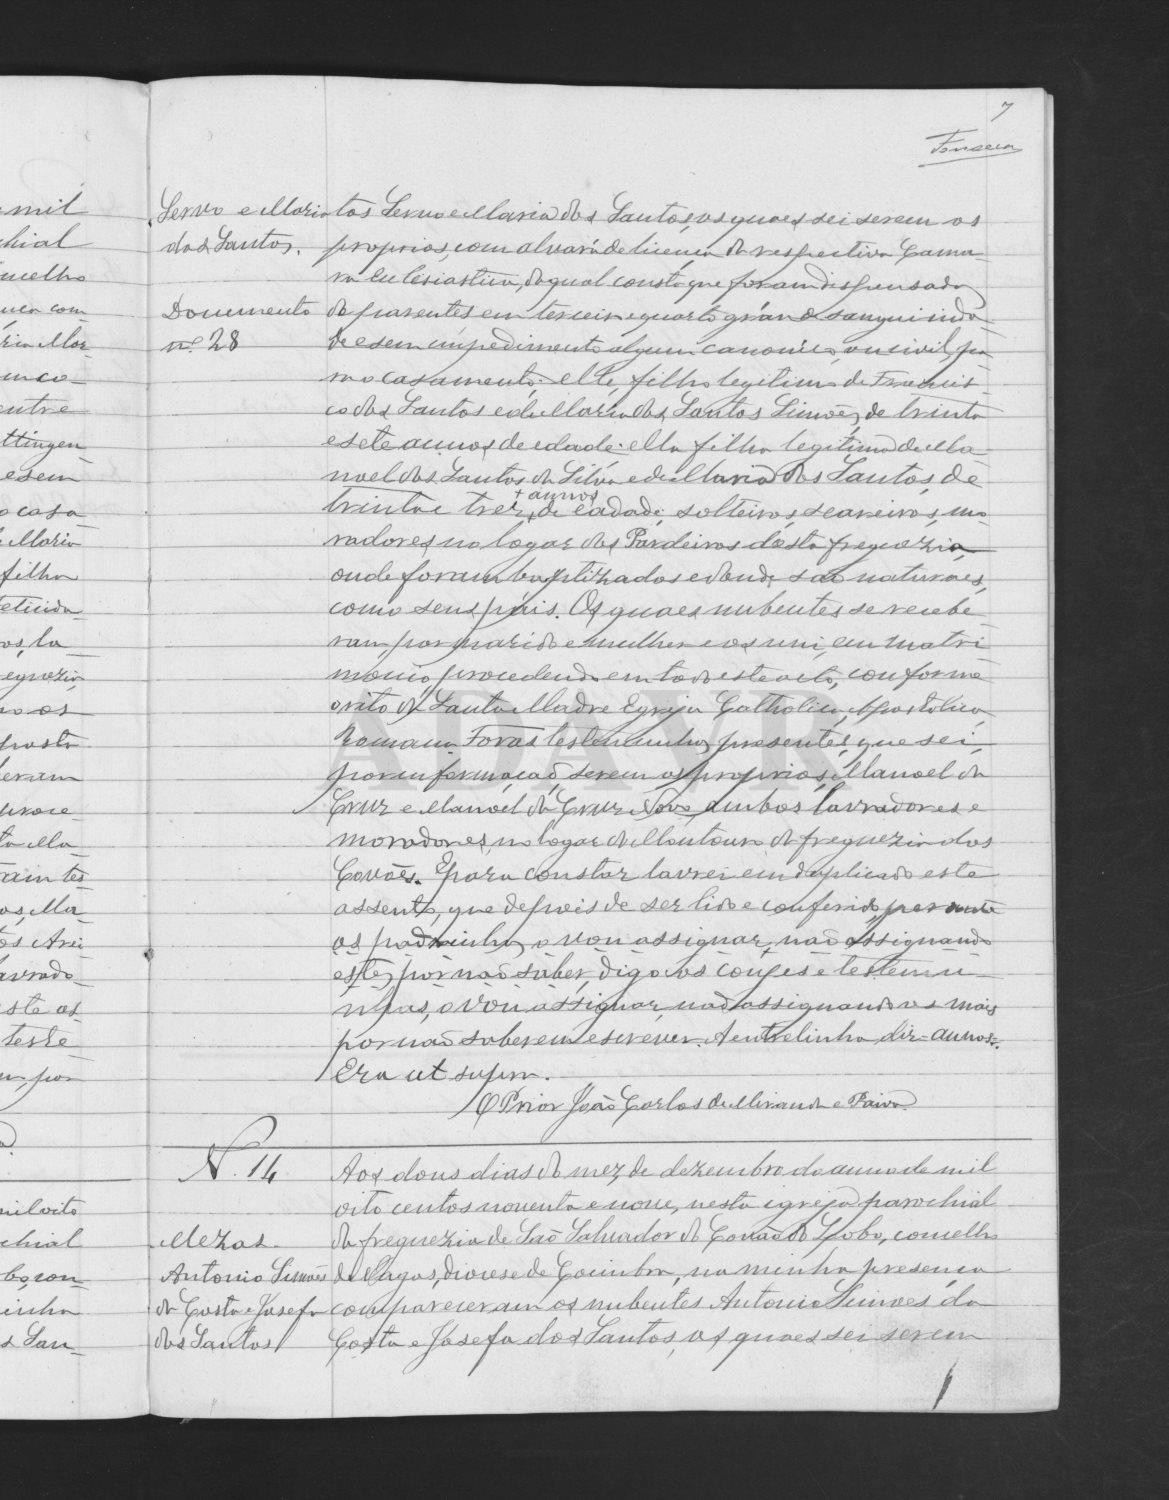 7
Fonseca
mil
chial
ncelho
uca com
ria Mor
unco
entre
ttingen
e sem
o casa
Maria
filha
eticida
os, la
eguezia
no os
posta
leram
proce
ta Ma
ram tes
os, Ma
tos Arei
avrado
este as
teste
n, por
mil oito
chial
bo, con
inha
s San
Servo e Maria
dos Santos.
Documento
nº 28
tos Servo e Maria dos Santos, os quaes sei serem os
proprios, com alvará de licença da respectiva Cama-
ra Eclesiastica, do qual consta que foram dispensados
de parentes em terceiro e quarto gráu de sanguinida-
de e sem impedimento algum canonico, ou civil, pa
ra o casamento; elle, filho legitimo de Francis
co dos Santos e de Maria dos Santos Simões, de trinta
e sete annos de edade; ella filha legitima de Ma-
noel dos Santos da Silva e de Maria dos Santos, de
+ annos
trinta e trez + de eadade, solteiros, seareiros, mo
radores no logar dos Pardeiros desta freguezia,
onde foram baptizados e donde são naturaes,
como seus pais. Os quaes nubentes se recebe
ram por marido e mulher e os uni em matri
monio, procedendo em todo este acto, conforme
o rito da Santa Madre Egreja Catholica, Apostolica,
Romana. Foras testemunhas presentes, que sei,
por informação, serem os proprios, Manoel da
Cruz e Manoel da Cruz Novo, ambos lavradores e
moradores no logar do Montouro da freguezia dos
Covões. E para constar lavrei em duplicado este
assento, que depois de ser lido e conferido, perante
os padrinhos, o vou assignar, não assignando
estes por não saber, digo os conges e testemu-
nhas, o vou assignar, não assignando os mais
por não saberem escrever. A entrelinha diz = annos =.
Era ut supra.
O Prior João Carlos de Miranda e Paiva.
N. 14
Mezas
Antonio Simões
da Costa e Josefa
dos Santos
Aos dous dias do mez de dezembro do anno de mil
oito centos noventa e nove, nesta igreja parochial
da freguezia de São Salvador de Covão do Lobo, concelho
de Vagos, diocese de Coimbra, na minha presença
compareceram os nubentes Antonio Simões da
Costa e Josefa dos Santos, os quaes sei serem